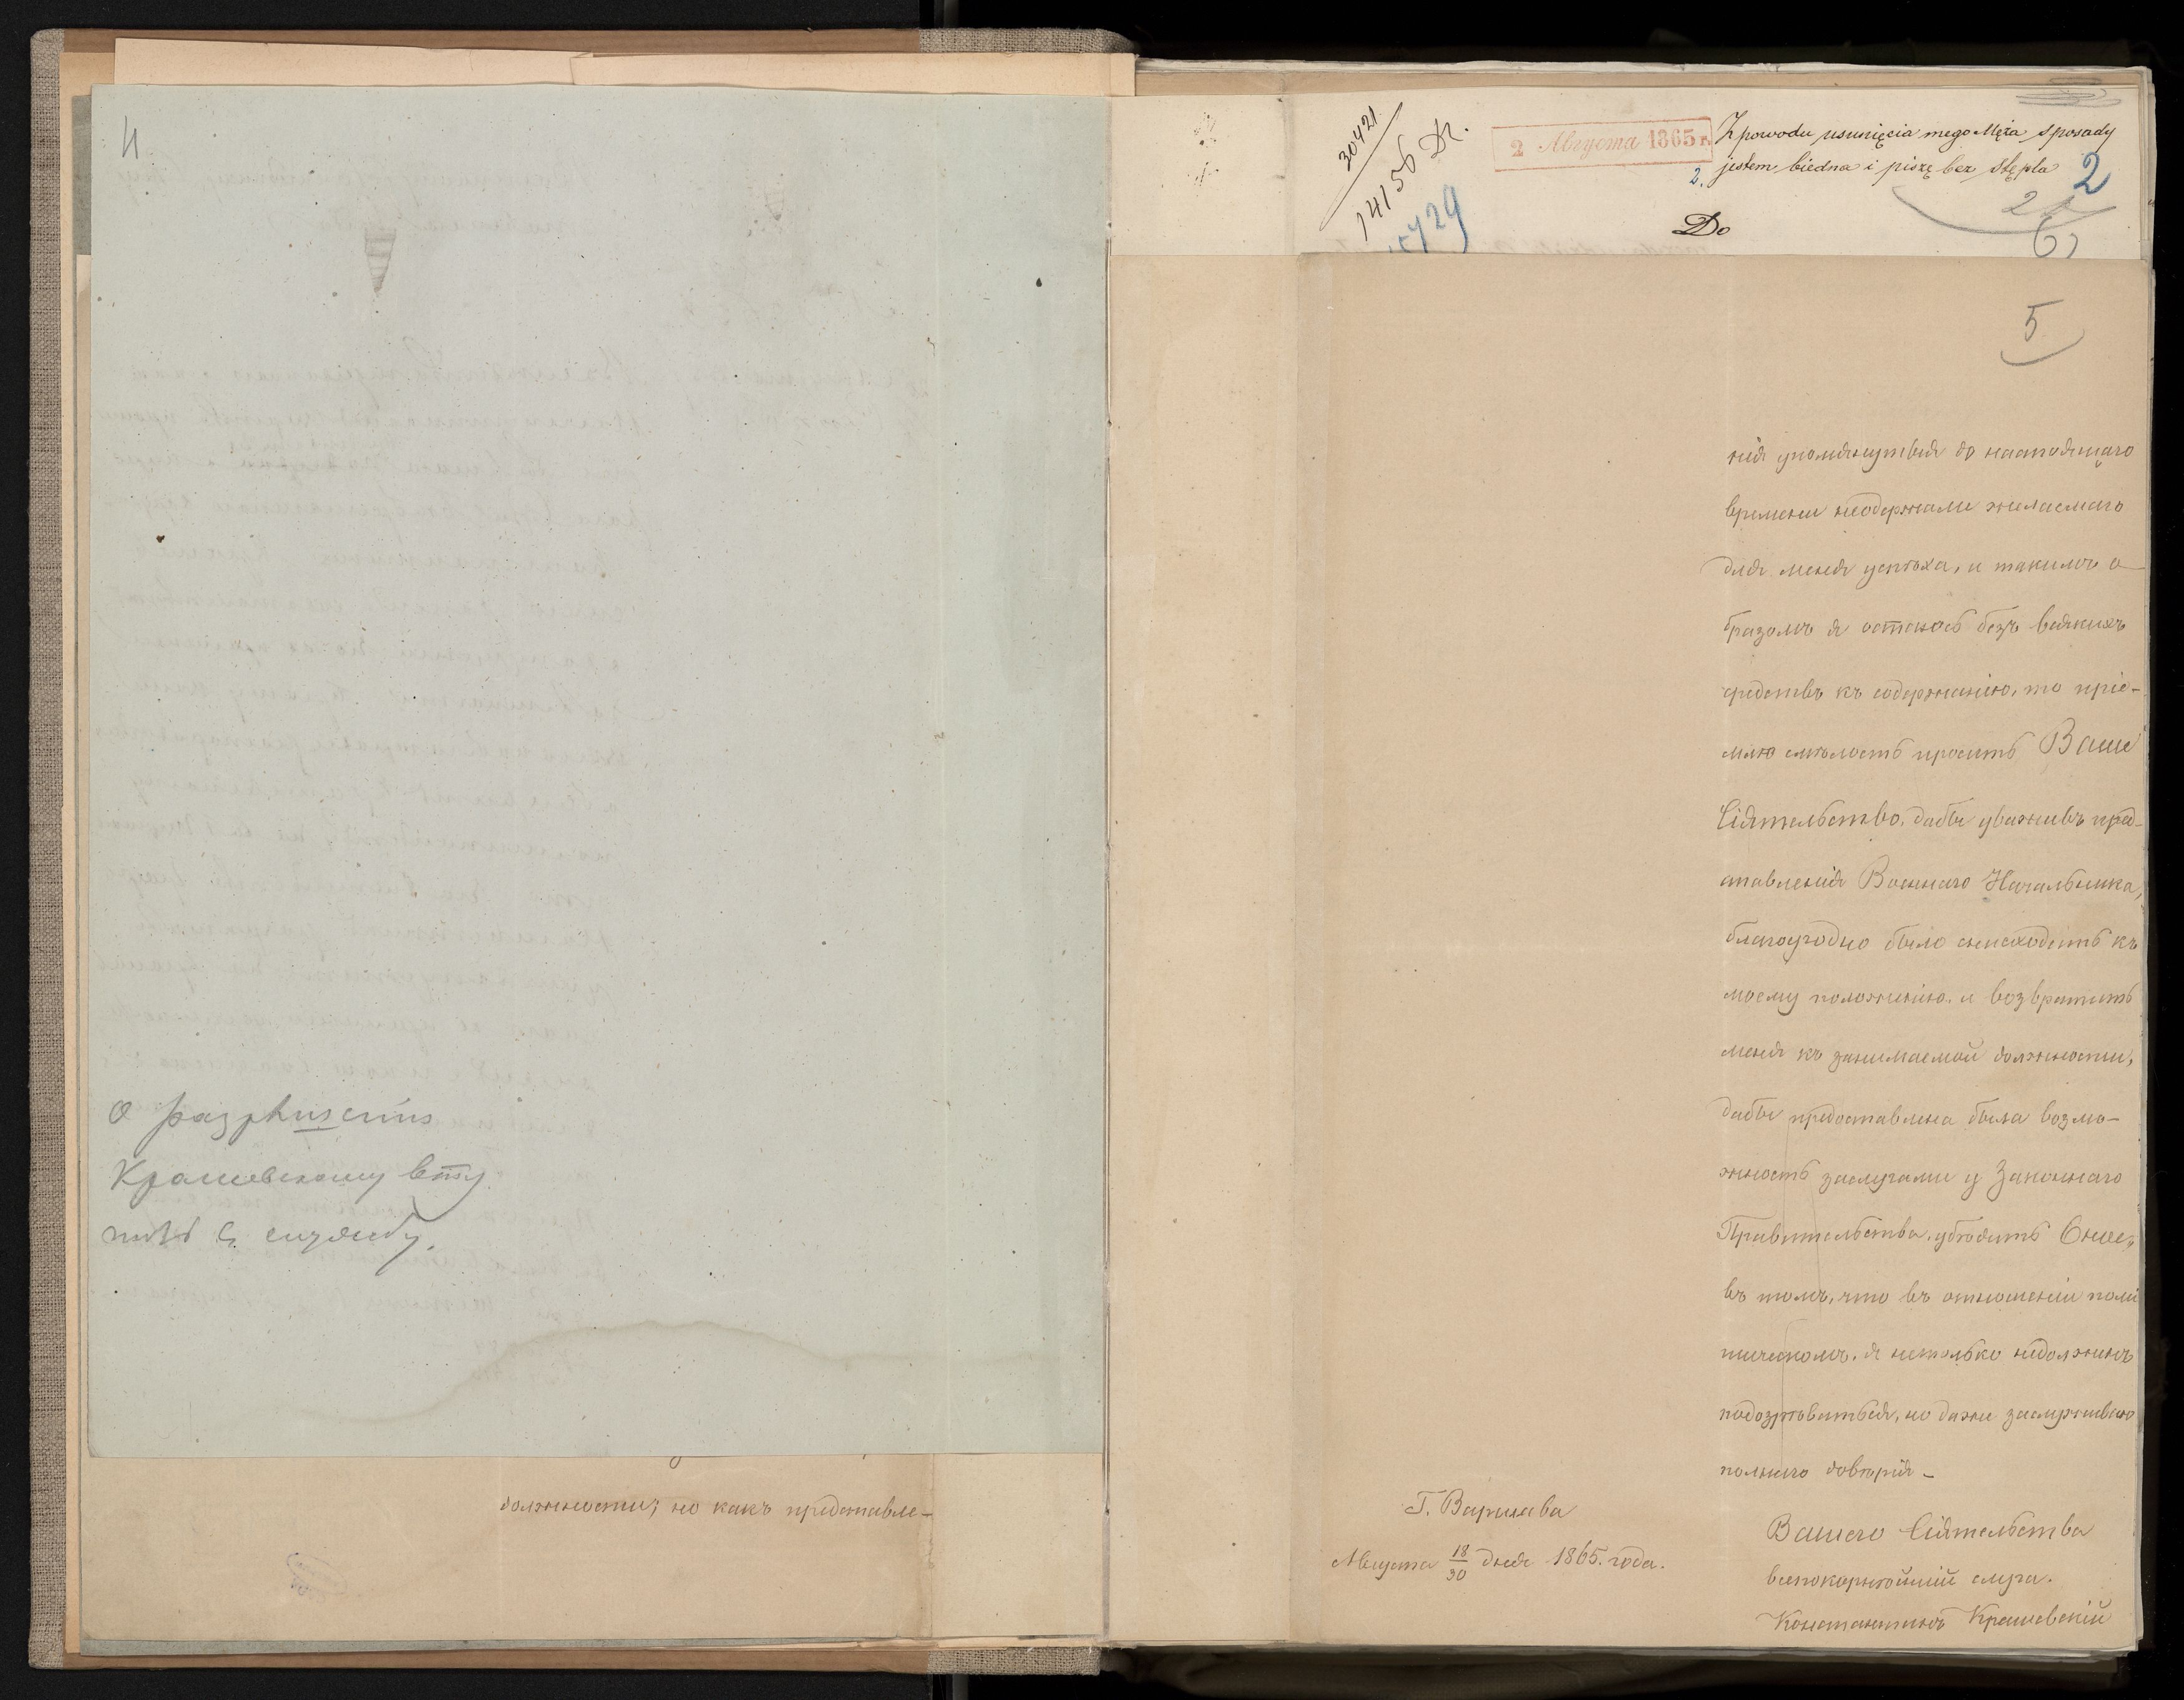 4
О разрѣшеніи
Крашевскому
должности; но какъ представле-
30421
14156 Dr.
2 Августа 1865 г.
Z powodu usunięcia mego Męża s posady
jestem biedna i piszę bez stępla
2.
2
Do
5729
6
5
нія упомянутыя до настоящаго
времени неодержали желаемаго
для меня успѣха, и такимъ о-
бразомъ я остаюсь безъ всякихъ
средствъ къ содержанію, то пріе-
млю смѣлость просить Ваше
Сіятельство, дабы уваживъ пред-
ставленія Военнаго Начальника,
благоугодно было снисходить къ
моему положенію, и возвратить
меня къ занимаемой должности,
дабы предоставлена была возмо-
жность заслугами у Законнаго
Правительства, убѣдить Оное,
въ томъ, что въ отношеніи поли
тическомъ, я нетолько недолженъ
подозрѣваться, но даже заслуживаю
полнаго довѣрія -
Г. Варшава
Августа 18/30 дня 1865. года.
Вашего Сіятельства
всепокорнѣйшій слуга.
Константинъ Крашевскій